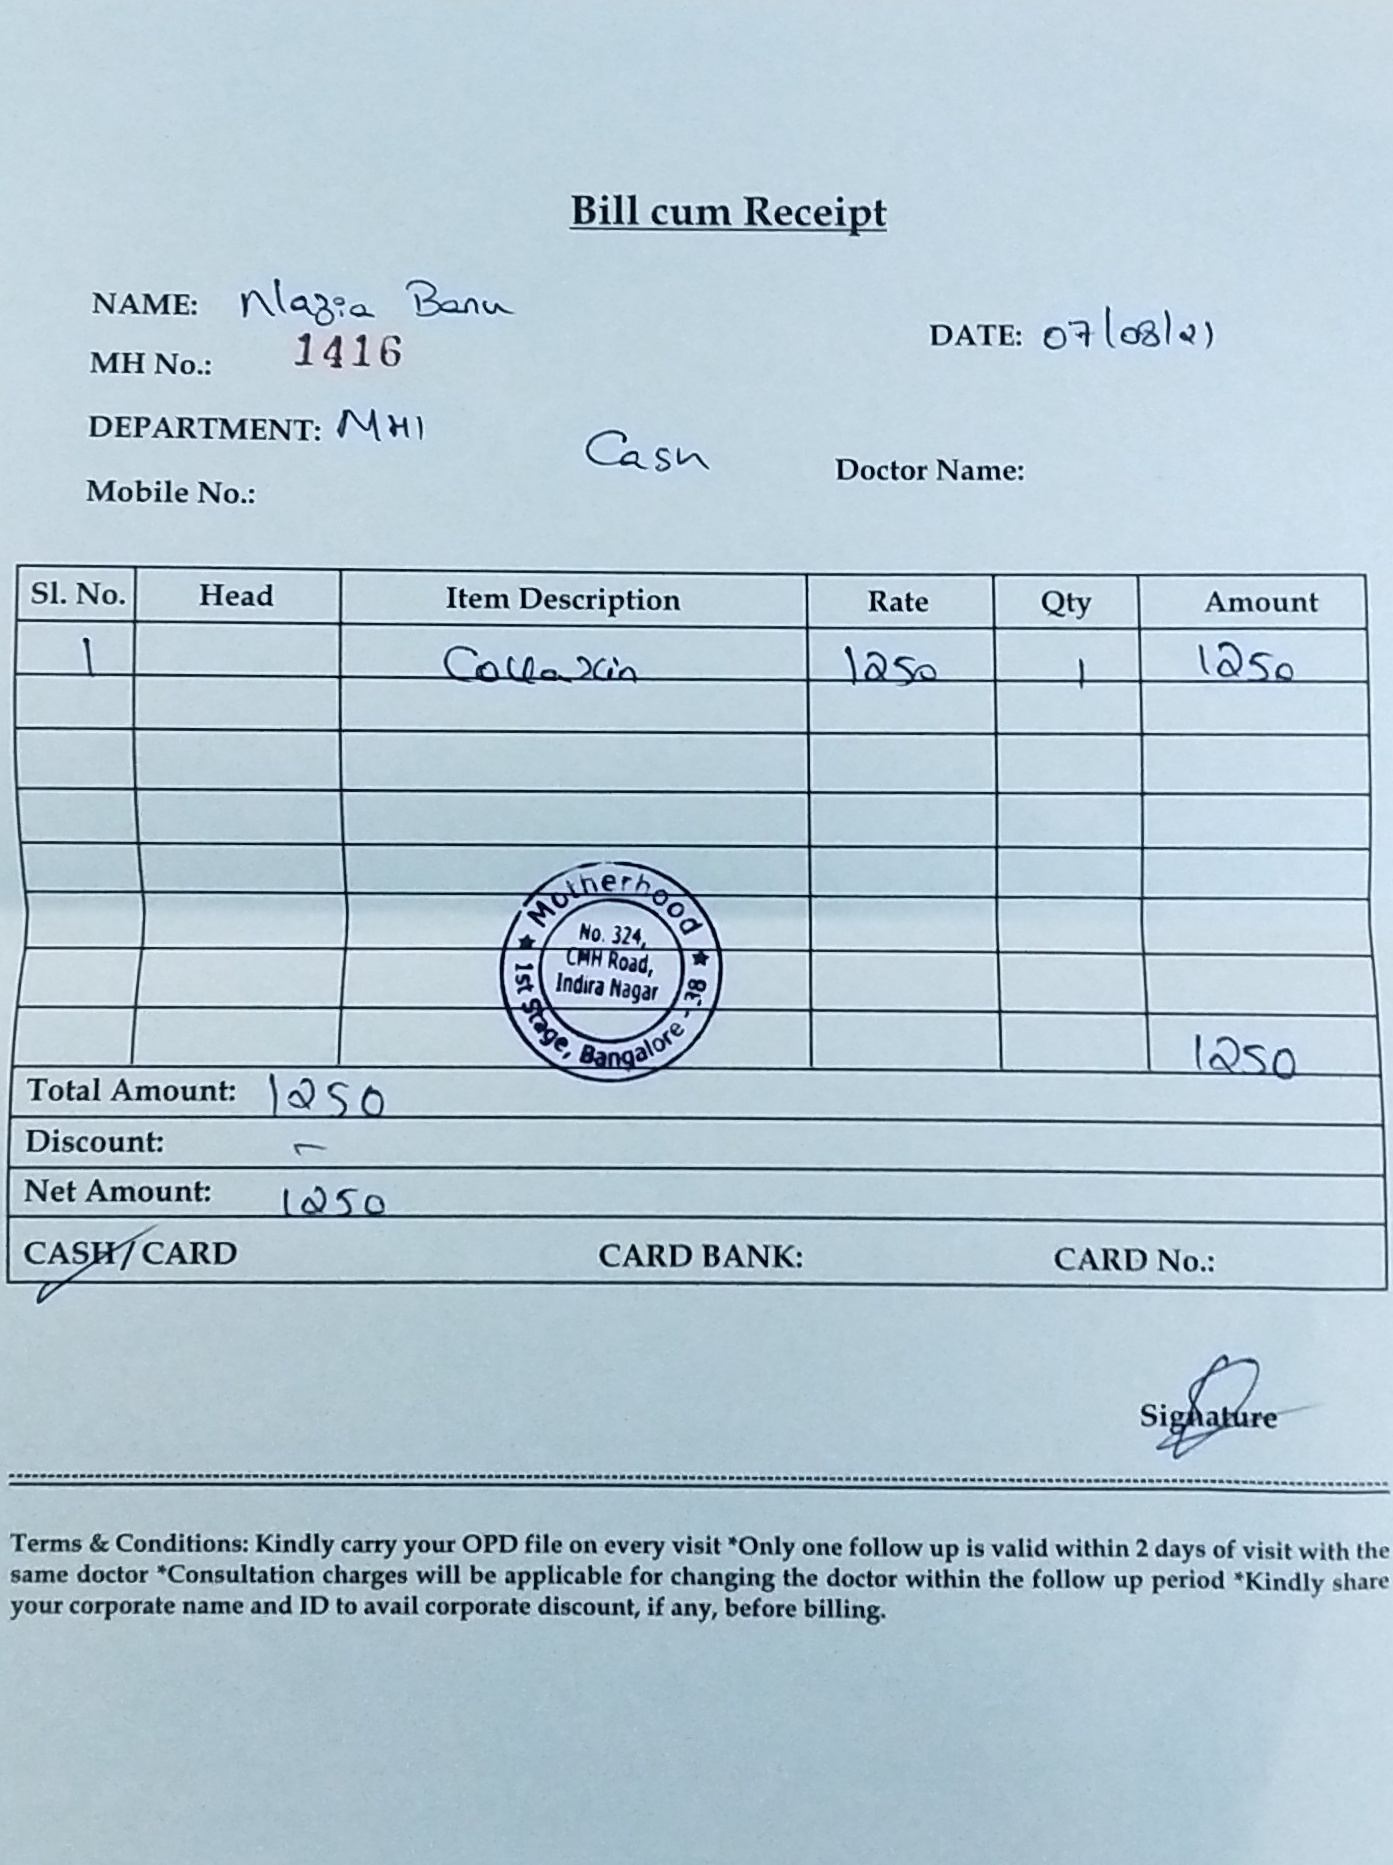 Bill cum Receipt
NAME: Nazia Banu
DATE: 07/08/21
MH No.: 1416
DEPARTMENT: MHI
Cash
Doctor Name:
Mobile No.:
Sl. No. Head Item Description Rate Qty Amount
1 Covaxin 1250 1 1250
Motherhood
No. 324,
CMH Road,
Indira Nagar
1st Stage, Bangalore - 38
1250
Total Amount: 1250
Discount: -
Net Amount: 1250
CASH / CARD CARD BANK: CARD No.:
Signature
Terms & Conditions: Kindly carry your OPD file on every visit *Only one follow up is valid within 2 days of visit with the
same doctor *Consultation charges will be applicable for changing the doctor within the follow up period *Kindly share
your corporate name and ID to avail corporate discount, if any, before billing.